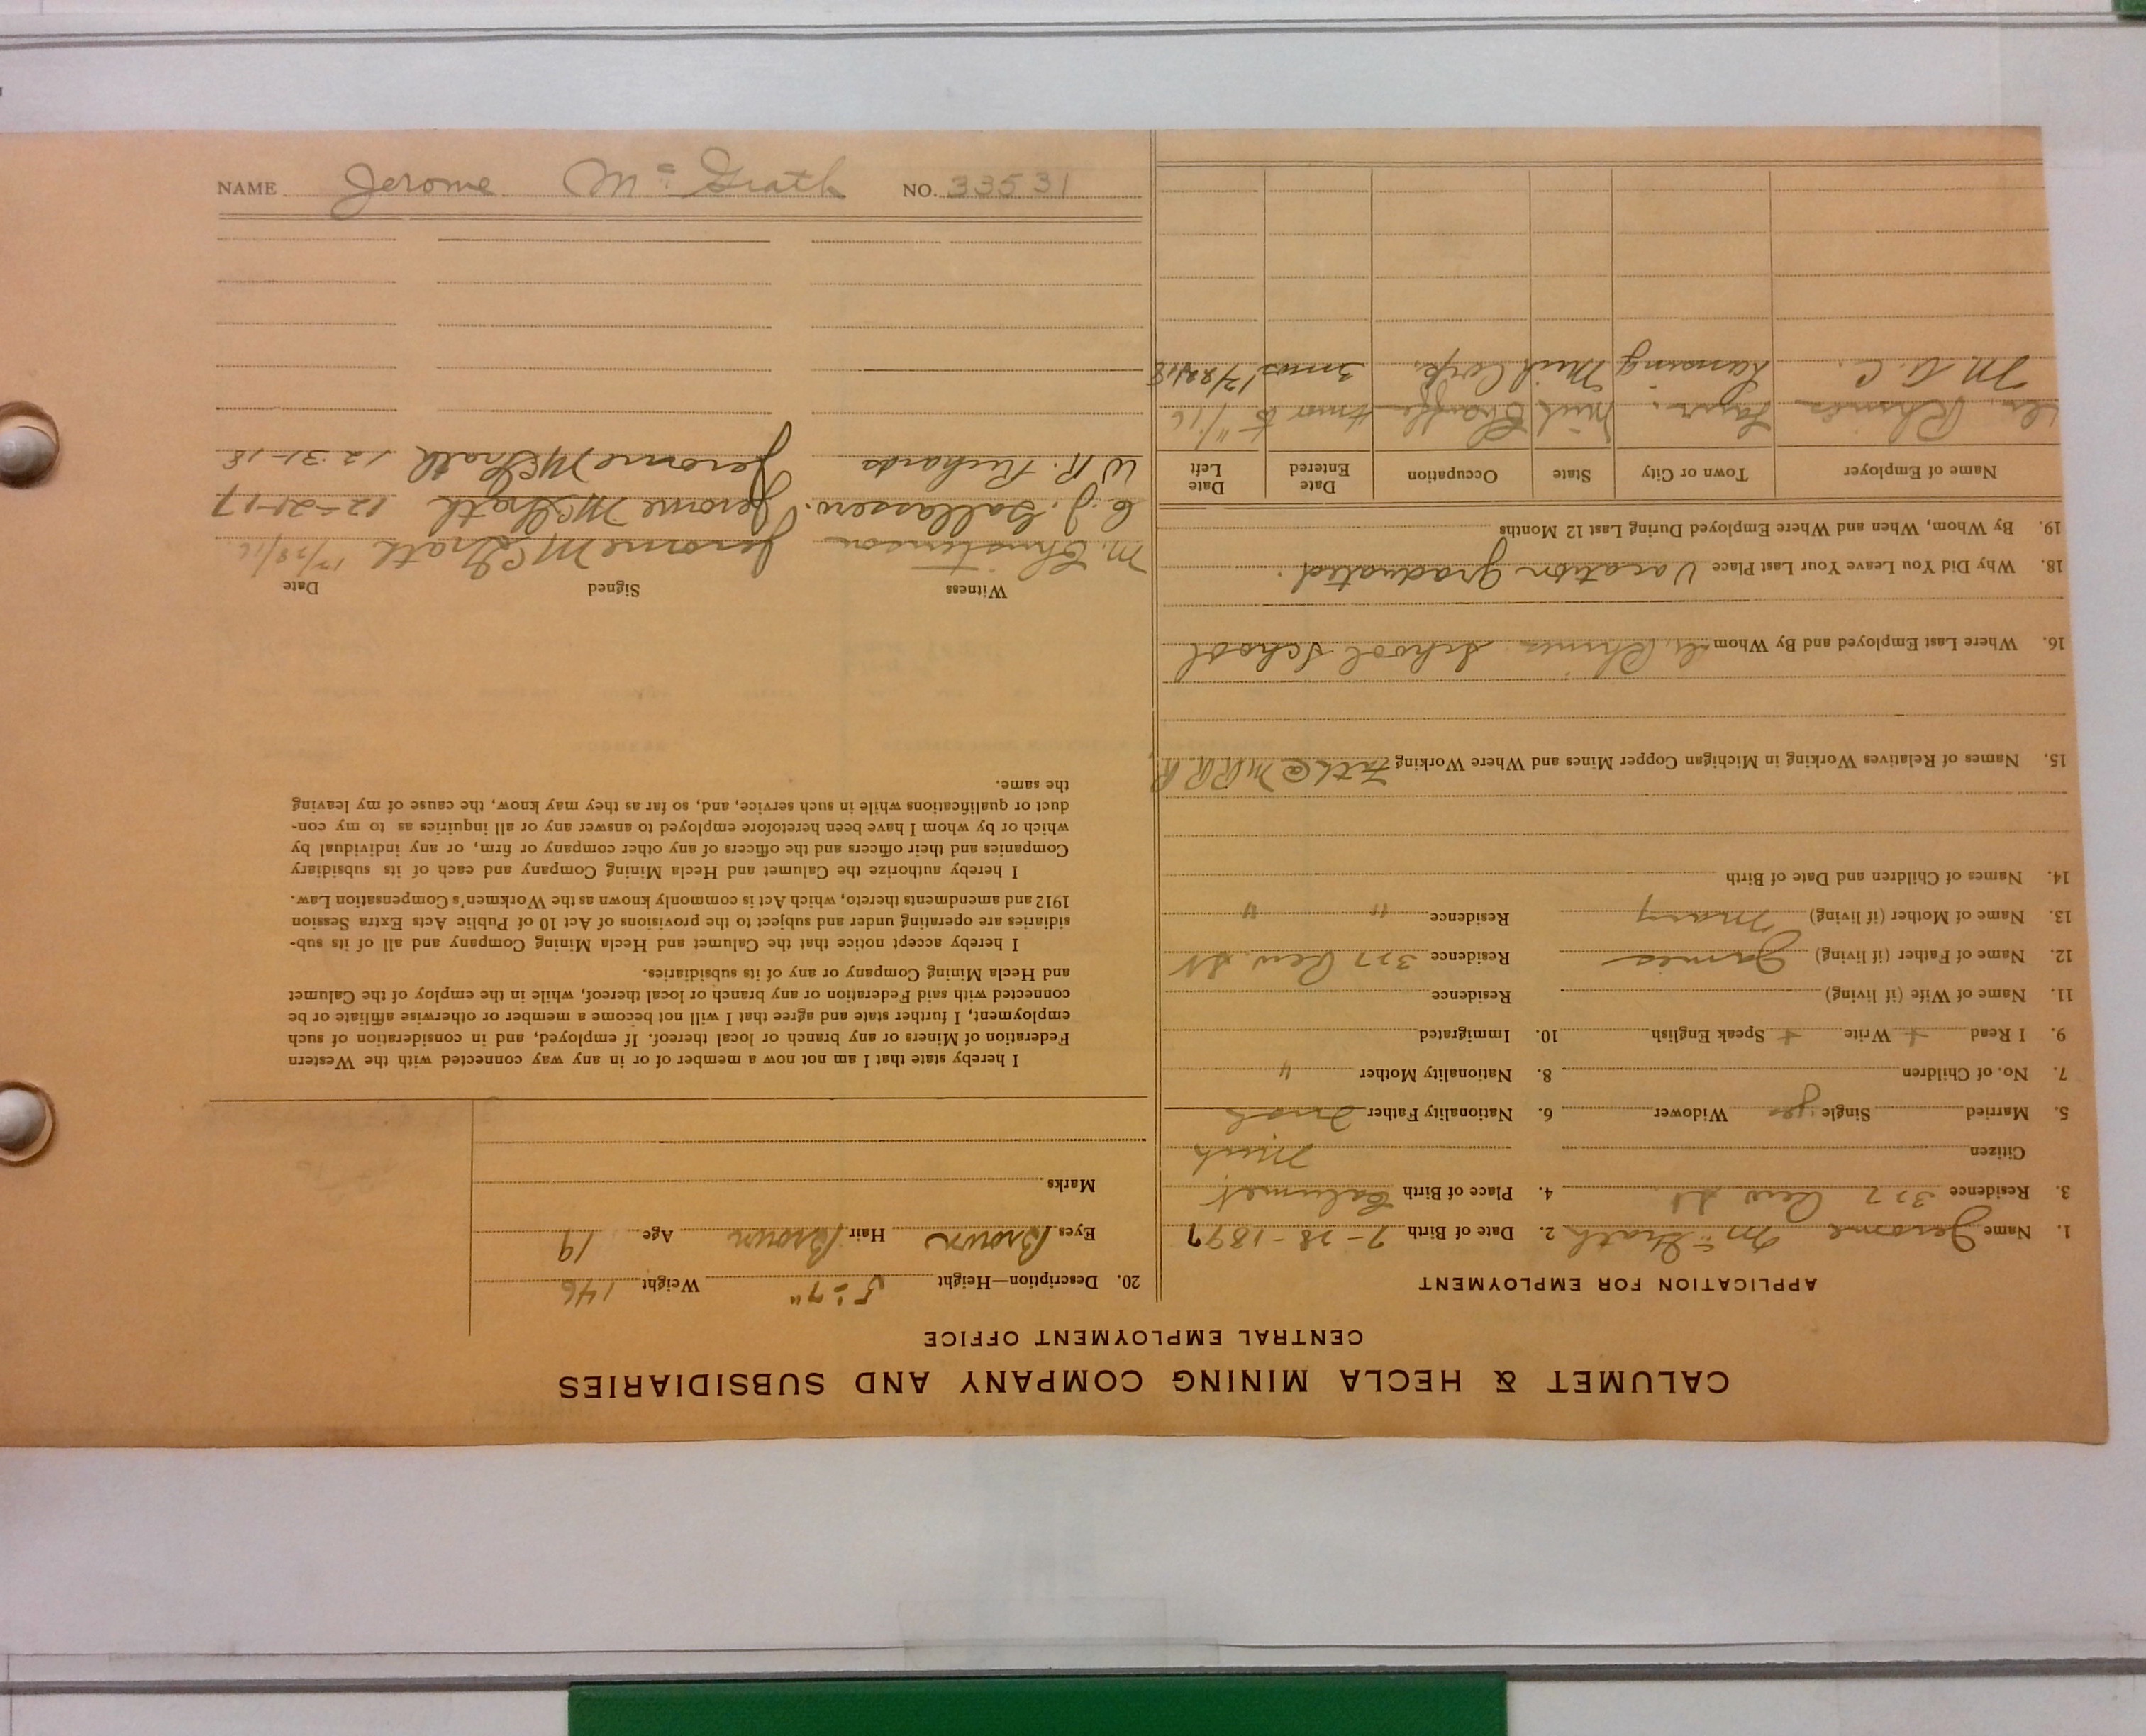 CALUMET & HECLA MINING COMPANY AND SUBSIDIARIES
CENTRAL EMPLOYMENT OFFICE
APPLICATION FOR EMPLOYMENT
1. Name Jerome McGrath 2. Date of Birth 7-28-1897
3. Residence 327 St 4. Place of Birth Calumet
Citizen Mich
5. Married Single yes Widower 6. Nationality Father Irish
7. No. of Children 8. Nationality Mother "
9. I Read + Write + Speak English 10. Immigrated
11. Name of Wife (if living) Residence
12. Name of Father (if living) James Residence 327 St
13. Name of Mother (if living) Mary Residence " "
14. Names of Children and Date of Birth
15. Names of Relatives Working in Michigan Copper Mines and Where Working
16. Where Last Employed and By Whom School School
18. Why Did You Leave Your Last Place Vacation graduated.
19. By Whom, When and Where Employed During Last 12 Months
Name of Employer Town or City State Occupation Date Entered Date Left
Mich 11/16
M. A. C. Lansing Mich 3 mos
20. Description—Height 5'-7" Weight 146
Eyes Brown Hair Brown Age 19
Marks
I hereby state that I am not now a member of or in any way connected with the Western
Federation of Miners or any branch or local thereof. If employed, and in consideration of such
employment, I further state and agree that I will not become a member or otherwise affiliate or be
connected with said Federation or any branch or local thereof, while in the employ of the Calumet
and Hecla Mining Company or any of its subsidiaries.
I hereby accept notice that the Calumet and Hecla Mining Company and all of its sub-
sidiaries are operating under and subject to the provisions of Act 10 of Public Acts Extra Session
1912 and amendments thereto, which Act is commonly known as the Workmen's Compensation Law.
I hereby authorize the Calumet and Hecla Mining Company and each of its subsidiary
Companies and their officers and the officers of any other company or firm, or any individual by
which or by whom I have been heretofore employed to answer any or all inquiries as to my con-
duct or qualifications while in such service, and, so far as they may know, the cause of my leaving
the same.
Witness Signed Date
M. Christenson Jerome McGrath 12/28/16
C. J. Jerome McGrath 12-21-17
W R. Richards Jerome McGrath 12-31-18
NAME Jerome McGrath NO. 33531